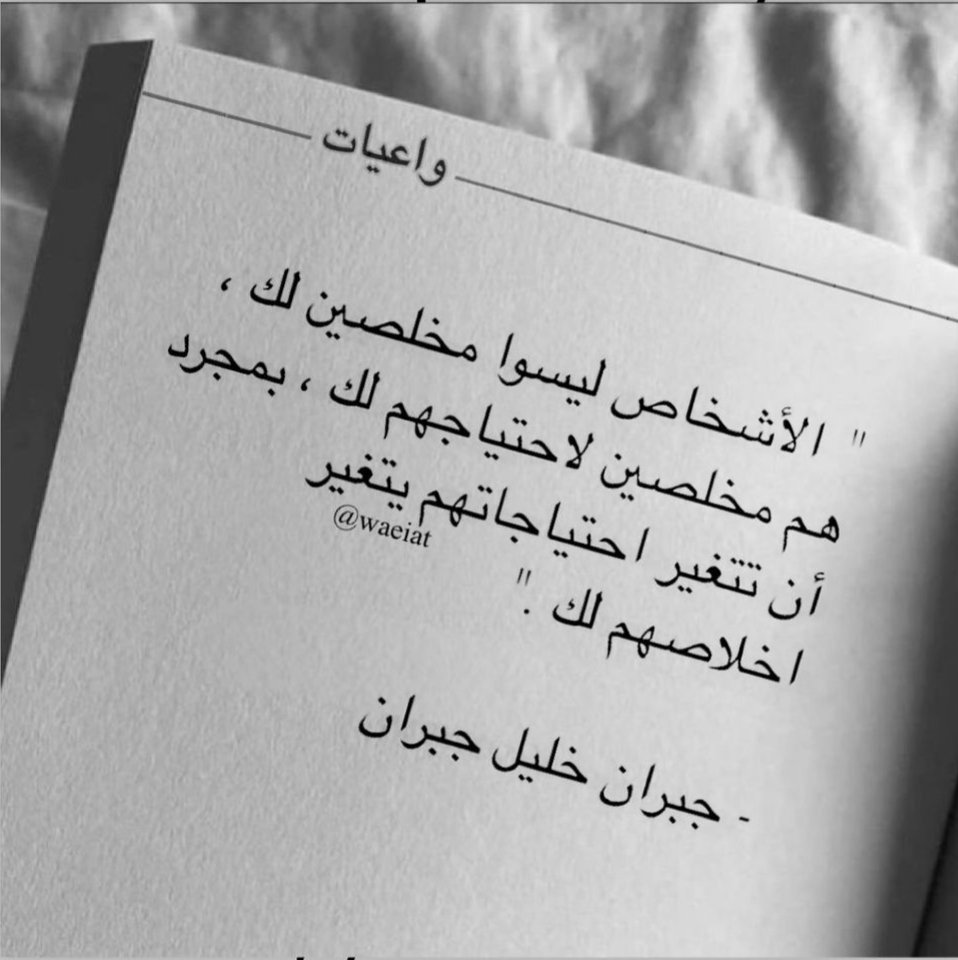 واعيات
" الأشخاص ليسوا مخلصين لك ،
هم مخلصين لاحتياجهم لك ، بمجرد
أن تتغير احتياجاتهم يتغير
@waeiat
اخلاصهم لك ."
- جبران خليل جبران